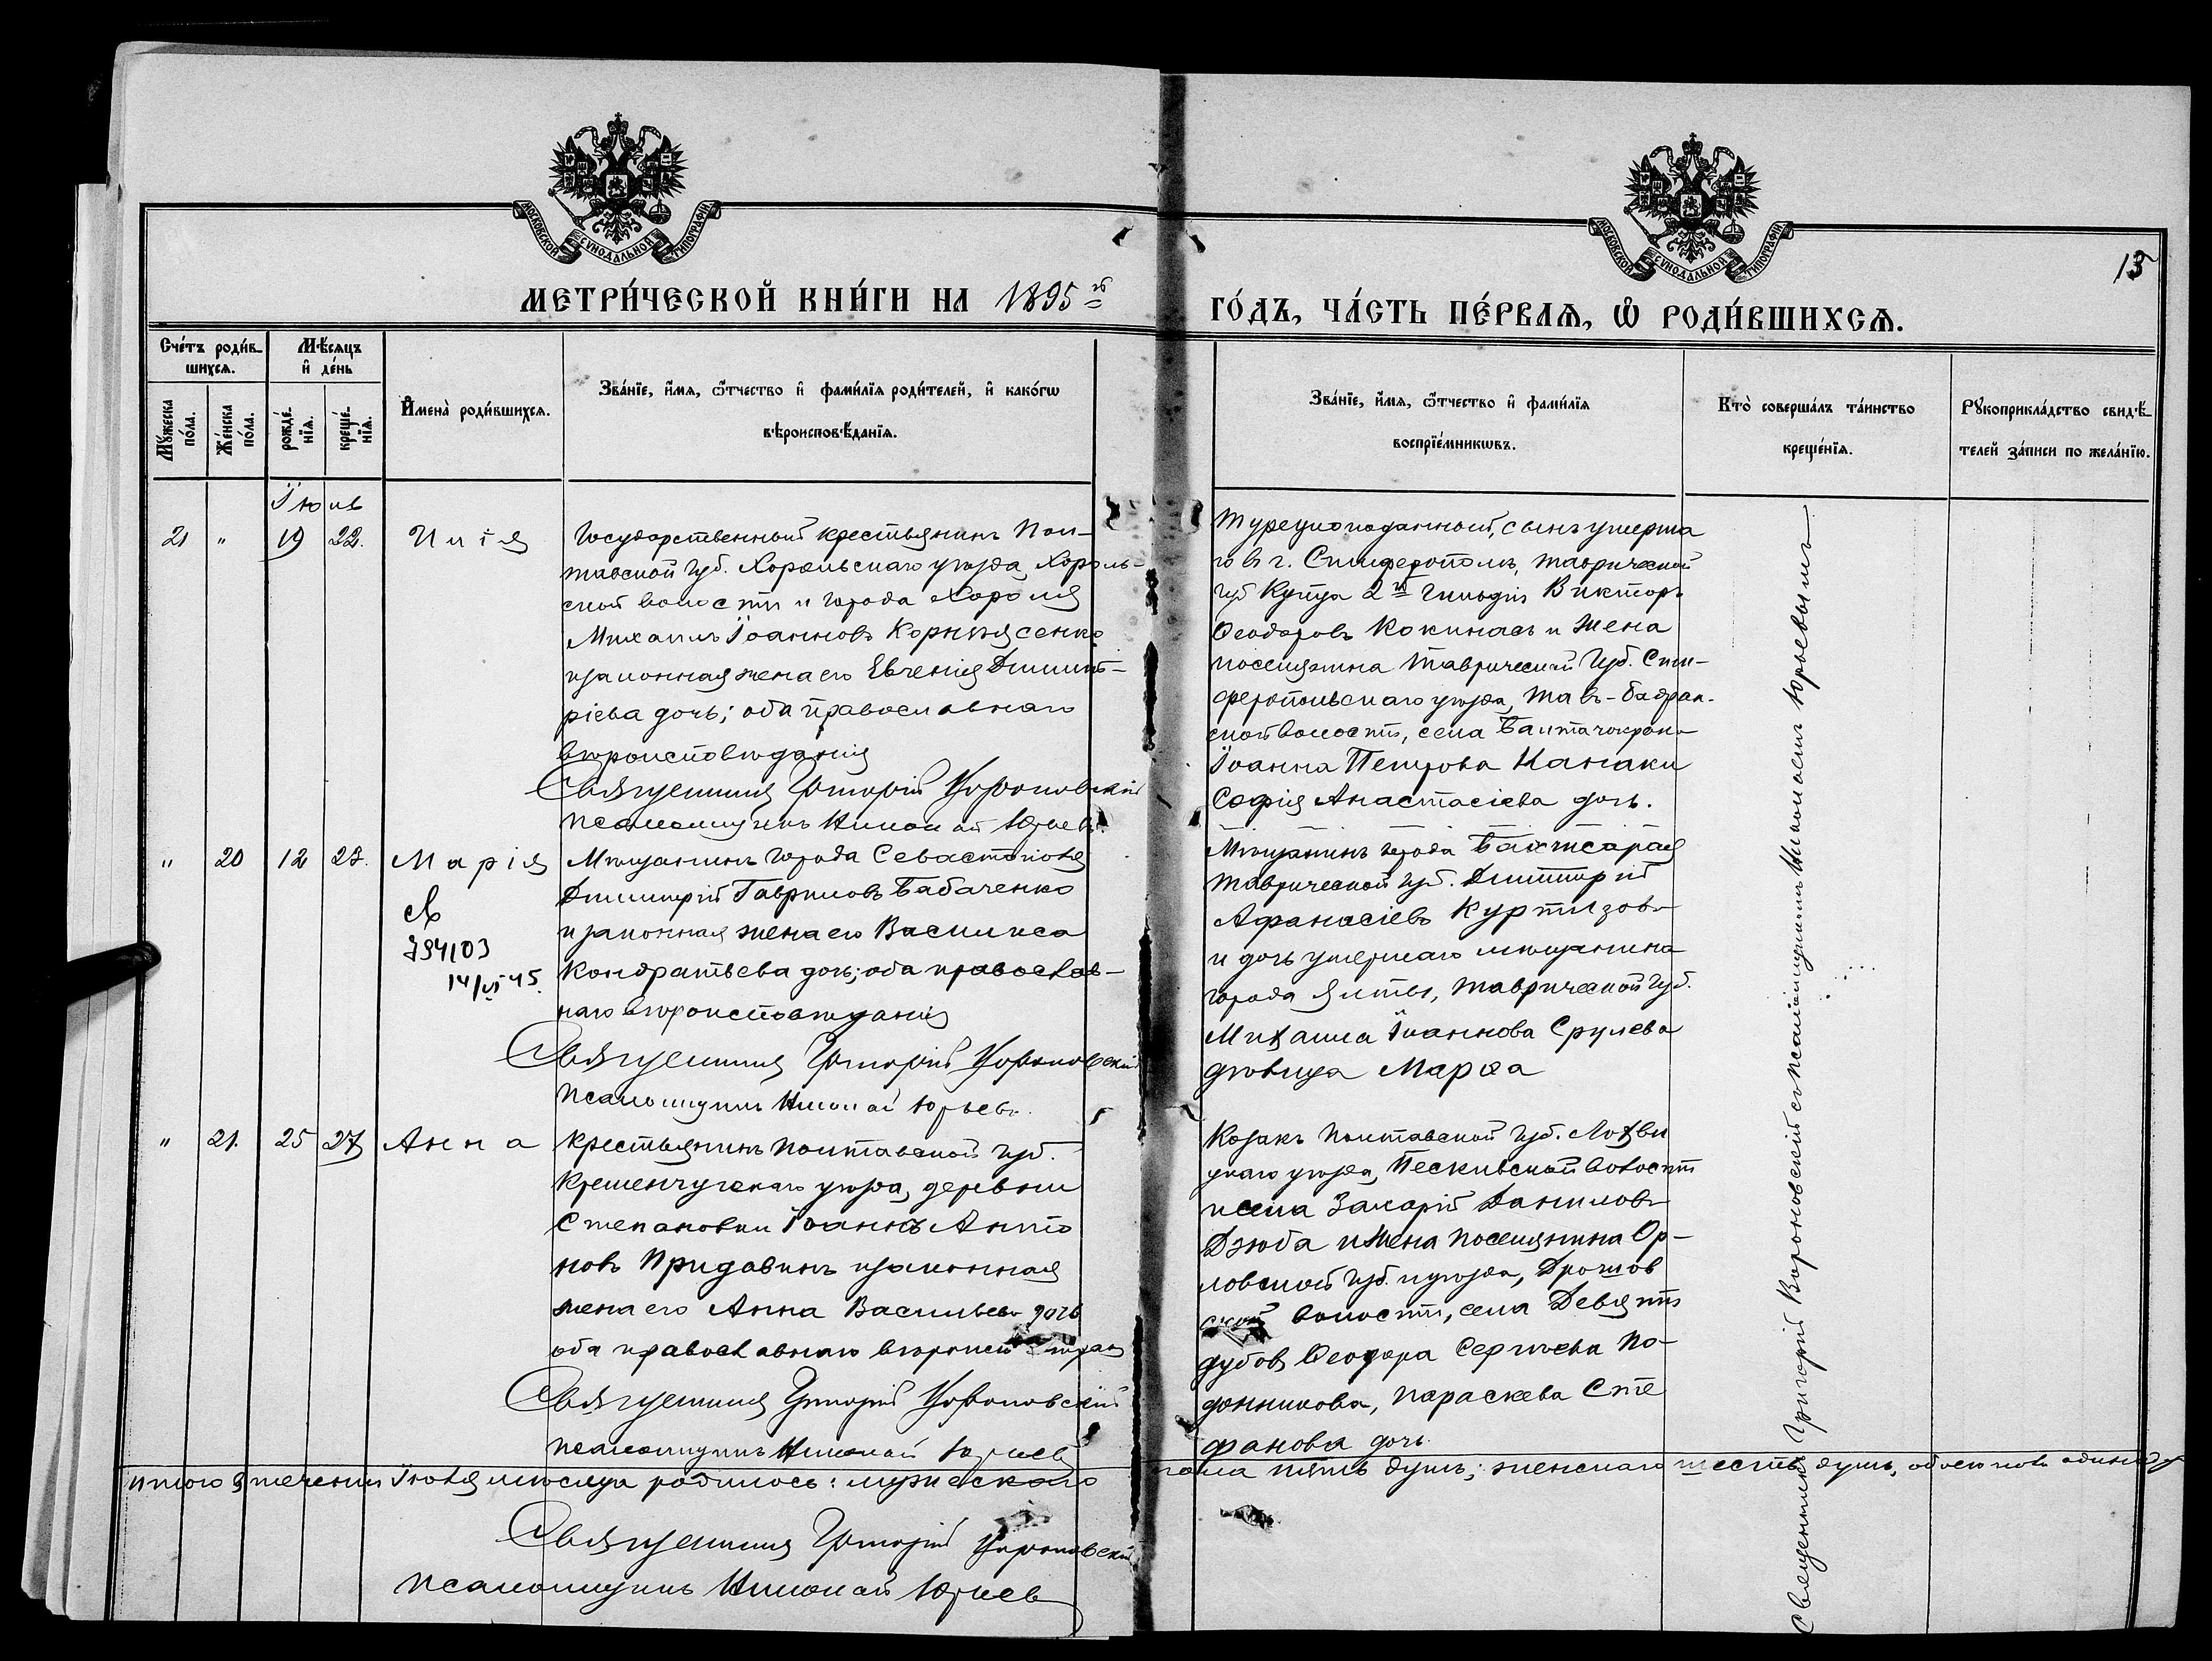 МОСКОВСКОЙ СУНОДАЛЬНОЙ ТИПОГРАФІИ
МЕТРИ́ЧЕСКОЙ КНИ́ГИ НА 1895 й
Сче́тъ роди́в-
шихсѧ.
Мѣ́сѧцъ
и҆ де́нь
Мꙋ́жеска по́ла.
Же́нска по́ла.
рожде́нїѧ.
креще́нїѧ.
И҆мена̀ роди́вшихсѧ.
Зва́нїе, и҆́мѧ, ѻ҆́тчество и҆ фами́лїѧ роди́телей, и҆ како́гѡ
вѣроисповѣ́данїѧ.
Іюнь
21 " 19 22. Илія
Государственный крестьянинъ Пол-
тавской губ. Хорольскаго уѣзда, Хороль-
ской волости и города Хороля
Михаилъ Іоанновъ
и законная жена его Евгенія Димит-
ріева дочь; оба православнаго
вѣроисповѣданія
Священникъ Григорій Вороновскій
псаломщикъ Николай Юрьевъ.
" 20 12 23. Марія
Мѣщанинъ города Севастополя
Димитрій Гавриловъ Бабаченко
и законная жена его Василиса
Кондратьева дочь; оба православ-
наго вѣроисповѣданія
794103
14/VI 45.
Священникъ Григорій Вороновскій
псаломщикъ Николай Юрьевъ.
" 21. 25 27 Анна
Крестьянинъ Полтавской губ.
Кременчугскаго уѣзда, деревни
Степановки Іоаннъ Анто
новъ Придавинъ и законная
жена его Анна Васильева дочь
оба православнаго
Священникъ Григорій Вороновскій
псаломщикъ Николай Юрьевъ
Итого въ теченіи Іюня мѣсяца родилось: мужескаго
Священникъ Григорій Вороновскій
псаломщикъ Николай Юрьевъ
МОСКОВСКОЙ СУНОДАЛЬНОЙ ТИПОГРАФІИ
13
ГО́ДЪ, ЧА́СТЬ ПЕ́РВАѦ, Ѡ҆ РОДИ́ВШИХСѦ.
Зва́нїе, и҆́мѧ, ѻ҆́тчество и҆ фами́лїѧ
воспрїе́мникѡвъ.
Кто̀ соверша́лъ та́инство
креще́нїѧ.
Рꙋкоприкла́дство свидѣ́-
телей за́писи по жела́нїю.
Турецкоподанный, сынъ умерша
го въ г. Симферополѣ, Таврической
губ купца 2й гильдіи Викторъ
Ѳеодоровъ Кокинасъ и жена
поселянина Таврической губ. Сим-
феропольскаго уѣзда,
ской волости, села
Іоанна Петрова Канаки
Софія Анастасіева дочь.
Мѣщанинъ города Бахчисарая
Таврической губ. Димитрій
Афанасіевъ Куртизовъ
и дочь умершаго мѣщанина
города Ялты, Таврической губ.
Михаила Іоаннова Срулева
дѣвица Марѳа
Козакъ Полтавской губ. Лохви
цкаго уѣзда, Песківской волости
и села Захарій Даниловъ
Дзюба и жена поселянина Ор-
ловской губ. и уѣзда,
ской волости, села Девяти
дубовъ Ѳеодора Сергѣева По-
донникова, Параскева Сте
фанова дочь.
пола пять душъ; женскаго шесть душъ, обоего пола
Священникъ Григорій Вороновскій съ псаломщикомъ Николаемъ Юрьевымъ